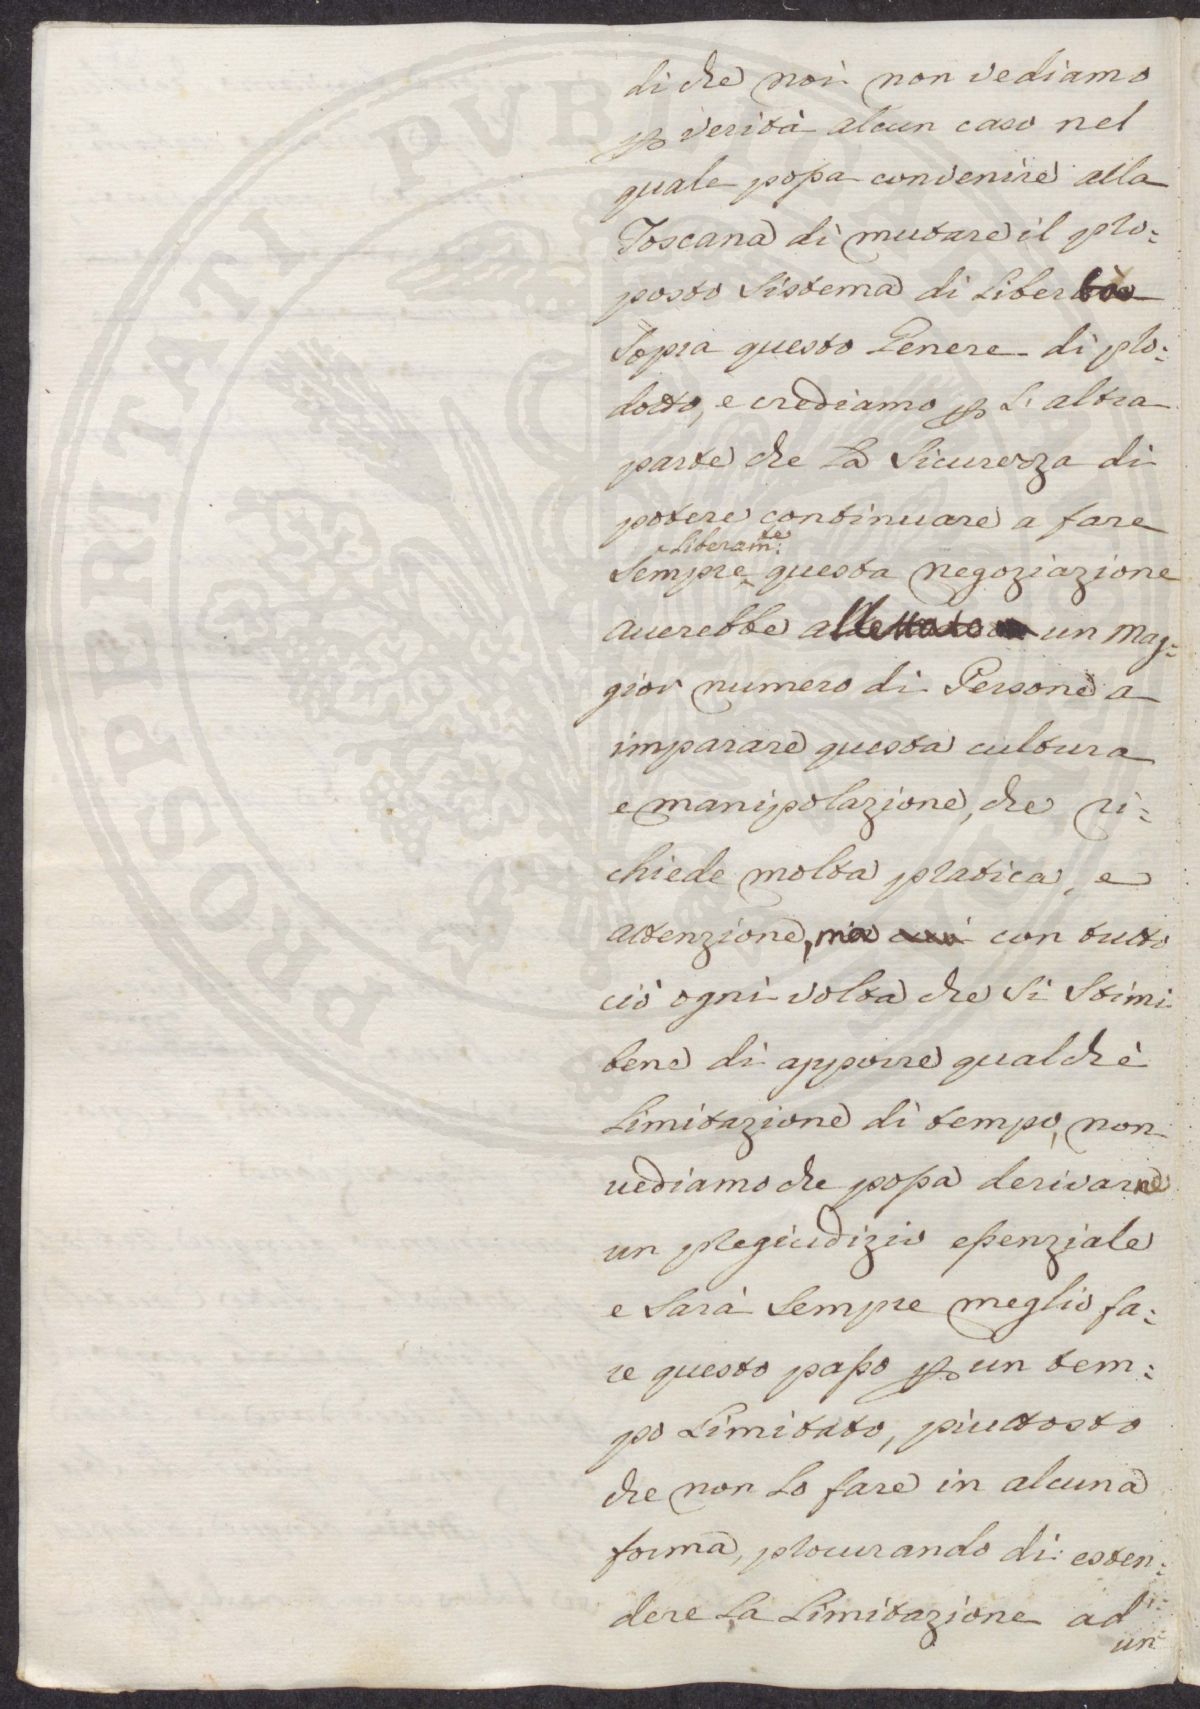 PROSPERITATI PVBLICAE
di che noi non vediamo
per verità alcun caso nel
quale possa convenire alla
Toscana di mutare il pro:
posto Sistema di Libertà
Sopra questo Genere di pro:
dotto, e crediamo per L'altra
parte che La Sicurezza di
potere continuare a fare
Liberam:te
Sempre questa negoziazione
averebbe allettato un mag:
gior numero di Persone a
imparare questa cultura
e manipolazione, che ri:
chiede molta pratica, e
attenzione, ma con tutto
ciò ogni volta che Si Stimi
bene di apporre qualche
Limitazione di tempo, non
vediamo che possa derivarne
un pregiudizio essenziale
e Sarà Sempre meglio fa:
re questo passo per un tem:
po Limitato, piuttosto
che non Lo fare in alcuna
forma, procurando di esten:
dere La Limitazione ad
un